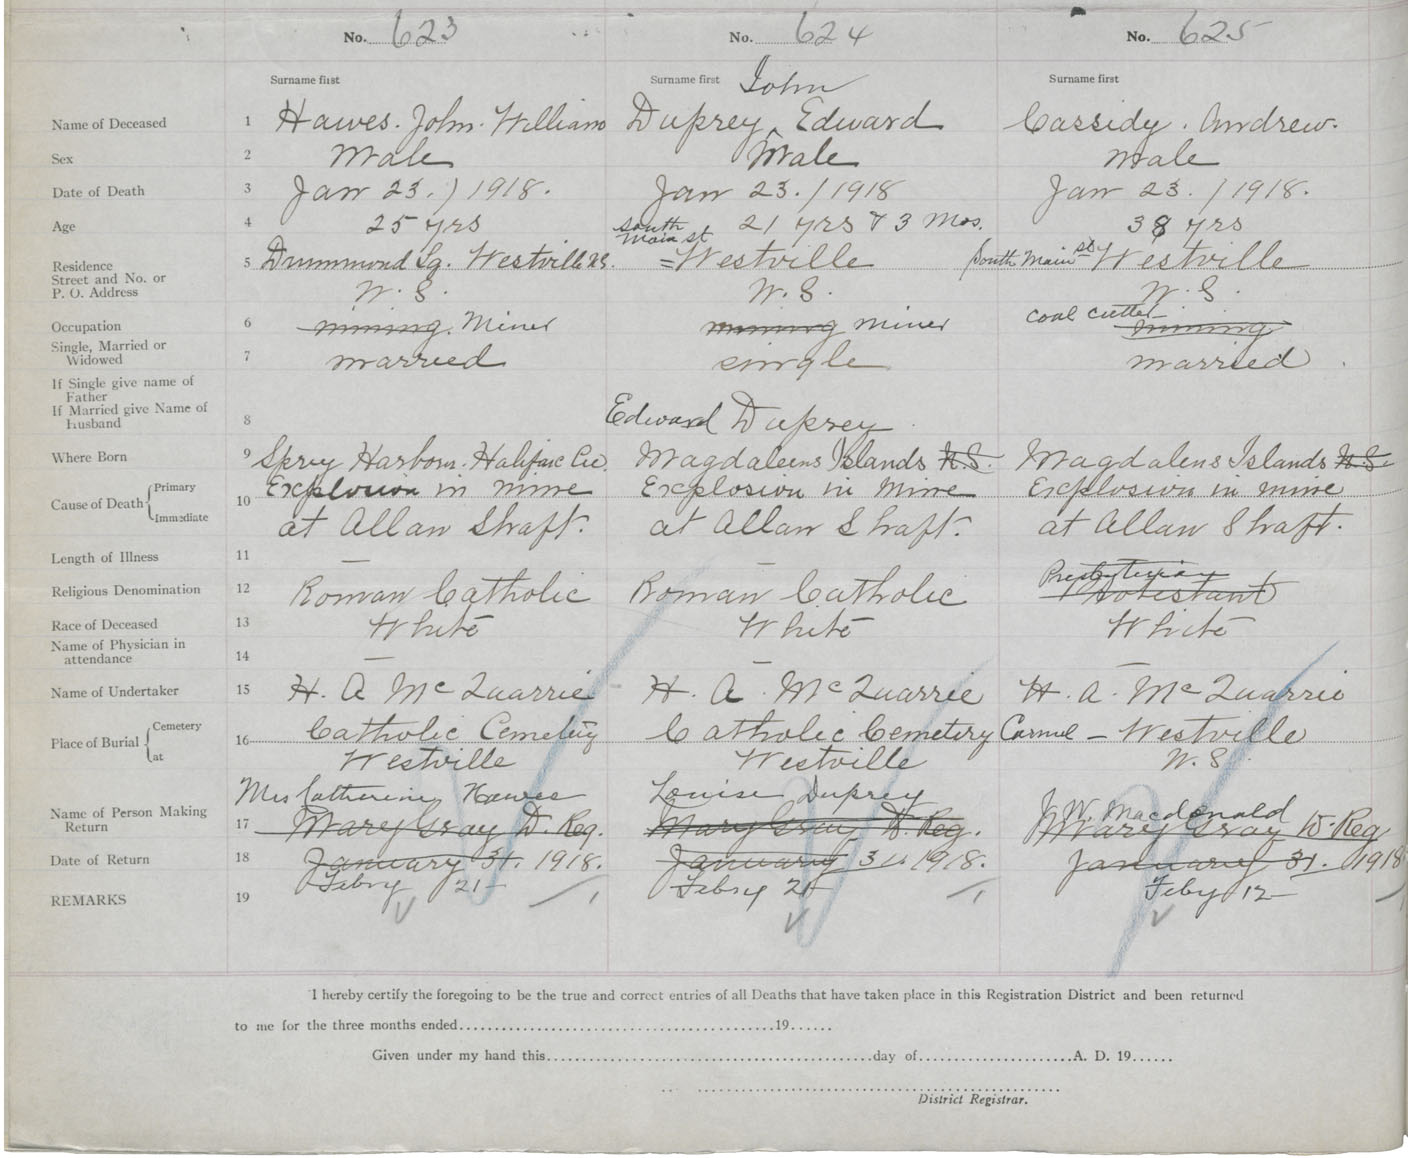 No. 623 No. 624 No. 625
Surname first Surname first John Surname first
Name of Deceased 1 Hawes. John. William Duprey, Edward Cassidy. Andrew.
Sex 2 Male Male Male
Date of Death 3 Jan 23. / 1918. Jan 23. / 1918 Jan 23. / 1918.
Age 4 25 yrs 21 yrs & 3 Mos. 38 yrs
South
Main st
Residence 5 Drummond Sq. Westville N.S. = Westville South Main st Westville
Street and No. or
P. O. Address N. S. N. S. N. S.
coal cutter
Occupation 6 mining. Miner mining miner mining
Single, Married or
Widowed 7 married single married
If Single give name of
Father
If Married give Name of
Husband 8 Edward Duprey
Where Born 9 Spry Harbour. Halifax Co. Magdaleens Islands N.S. Magdalens Islands N.S.
Cause of Death Primary 10 Explosion in mine Explosion in Mine Explosion in mine
Immediate at Allan Shaft. at Allan Shaft. at Allan Shaft.
Length of Illness 11 —
Presbyterian
Religious Denomination 12 Roman Catholic Roman Catholic Protestant
Race of Deceased 13 White White White
Name of Physician in
attendance 14 — — —
Name of Undertaker 15 H. A Mc Quarrie H. A. Mc Quarrie H. A. Mc Quarrie
Place of Burial Cemetery 16 Catholic Cemetery Catholic Cemetery Carmel – Westville
at Westville Westville N.S.
Mrs Catherine Hawes Louise Duprey J. W. Macdonald
Name of Person Making
Return 17 Mary Gray D. Reg. Mary Gray D. Reg. Mary Gray D. Reg
Date of Return 18 January 31. 1918. January 31. 1918. January 31. 1918
Febry 21 Febry 21 Feby 12
REMARKS 19
I hereby certify the foregoing to be the true and correct entries of all Deaths that have taken place in this Registration District and been returned
to me for the three months ended..........19......
Given under my hand this..........day of..........A. D. 19......
District Registrar.